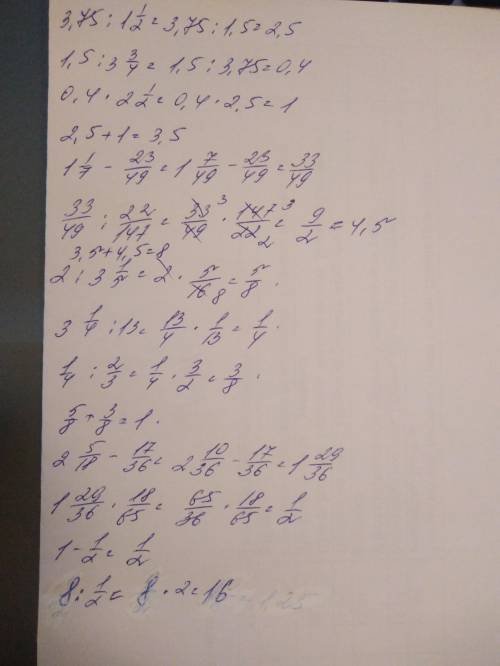 3,75 : 1 1/2 = 3,75 : 1,5 = 2,5
1,5 : 3 3/4 = 1,5 : 3,75 = 0,4
0,4 · 2 1/2 = 0,4 · 2,5 = 1
2,5 + 1 = 3,5
1 1/7 - 23/49 = 1 7/49 - 23/49 = 33/49
33/49 : 22/147 = 33/49 3 · 147/22 3 2 = 9/2 = 4,5
3,5 + 4,5 = 8
2 : 3 1/5 = 2 · 5/16 8 = 5/8 .
3 1/4 : 13 = 13/4 · 1/13 = 1/4 .
1/4 : 2/3 = 1/4 · 3/2 = 3/8 .
5/8 + 3/8 = 1 .
2 5/18 - 17/36 = 2 10/36 - 17/36 = 1 29/36
1 29/36 · 18/65 = 65/36 · 18/65 = 1/2
1 - 1/2 = 1/2
8 : 1/2 = 8 · 2 = 16